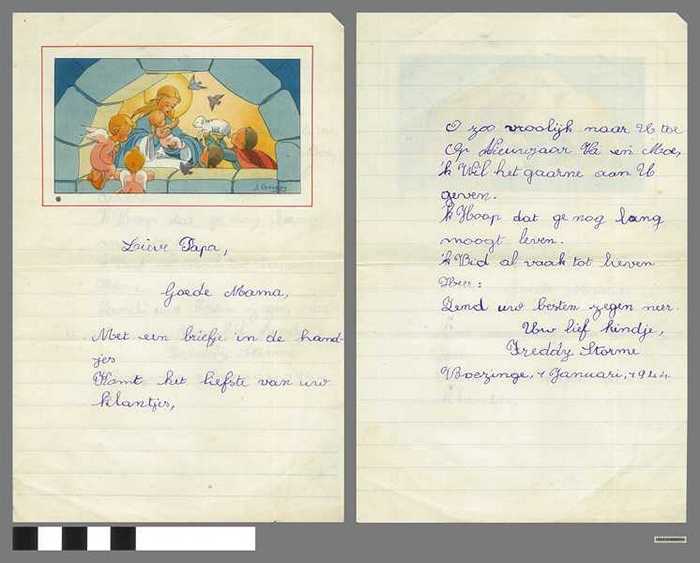 Lieve Papa,
Goede Mama,
Met een briefje in de hand-
jes
Komt het liefste van uw
klantjes,
O zoo vroolijk naar U toe
Op Nieuwjaar Va en Moe,
'k Wil het gaarne aan U
geven.
'k Hoop dat ge nog lang
moogt leven.
'k Bid al vaak tot lieven
Heer:
Zend uw besten zegen neer.
Uw lief kindje,
Freddy Storme
Boezinge, 1 Januari, 1944